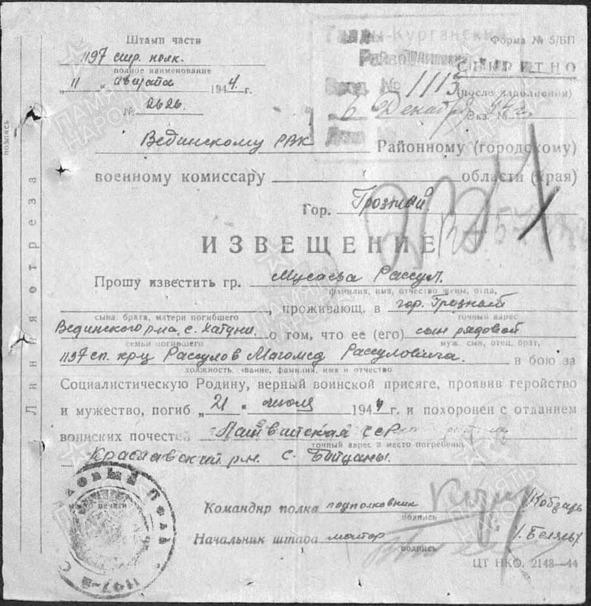 Штамп части
Форма № 5/БП
1197 стр. полк.
полное наименование
СЕКРЕТНО
(после заполнения)
11 августа 1944 г.
№ 2626
Вход. № 1115
6 Декабря
Вединскому РВК Районному (городскому)
военному комиссару области (края)
Гор. Грозный
ИЗВЕЩЕНИЕ
Прошу известить гр. Мусаева Рассул.
фамилия, имя, отчество жены, отца,
, проживающ. в гор. Грозный
сына, брата, матери погибшего точный адрес
Вединского р-на с. Хатуни о том, что ее (его) сын рядовой
семьи погибшего муж, сын, отец, брат,
1197 сп. кр-ц Рассулов Магомед Рассулович. в бою за
должность, звание, фамилия, имя и отчество
Социалистическую Родину, верный воинской присяге, проявив геройство
и мужество, погиб „21" июля 1944 г. и похоронен с отданием
воинских почестей Латвийская ССР
точный адрес и место погребения
Краславский р-н. с.
Командир полка подполковник Кобзарь
подпись
Начальник штаба майор
подпись
ЦТ НКО. 2148—44
Линия отреза
подпись